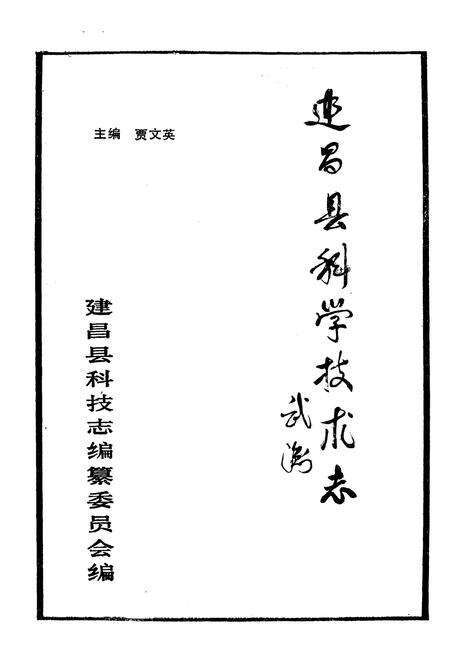 建昌县科学技术志
武
主编 贾文英
建昌县科技志编纂委员会编